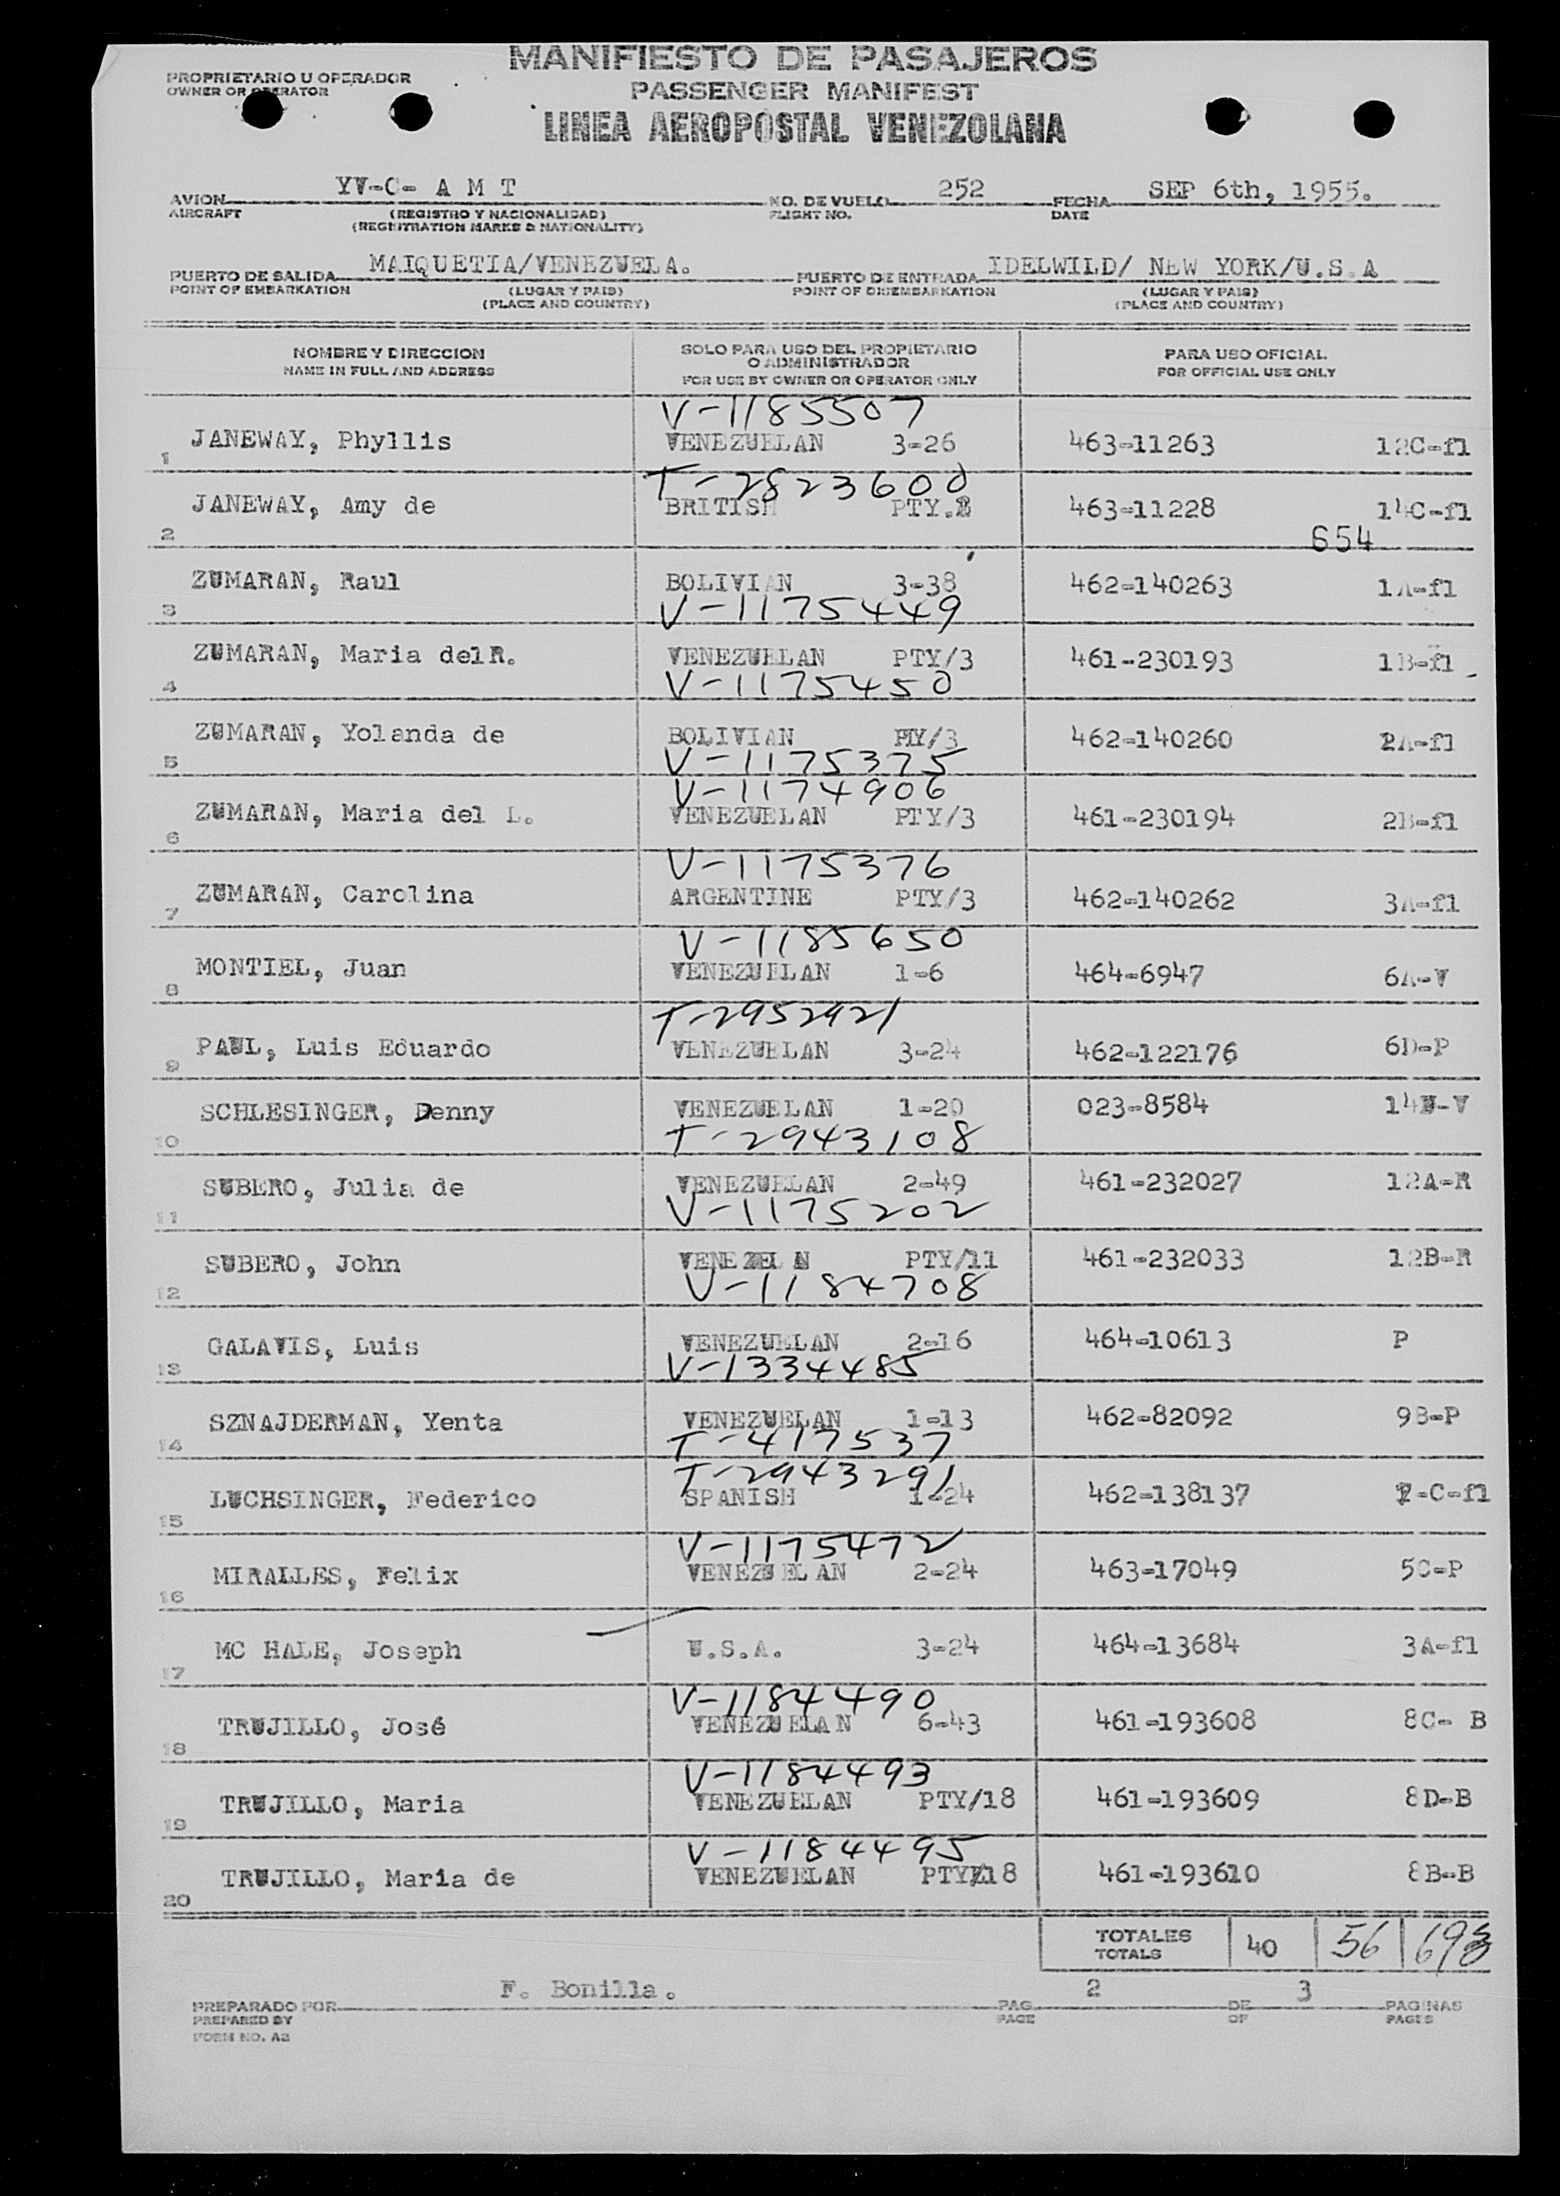 MANIFIESTO DE PASAJEROS
PROPRIETARIO U OPERADOR
OWNER OR OPERATOR
PASSENGER MANIFEST
LINEA AEROPOSTAL VENEZOLANA
AVION YV-C- A M T NO. DE VUELO 252 FECHA SEP 6th, 1955.
AIRCRAFT (REGISTRO Y NACIONALIDAD) FLIGHT NO. DATE
(REGISTRATION MARKS & NATIONALITY)
PUERTO DE SALIDA MAIQUETIA/VENEZUELA. PUERTO DE ENTRADA IDELWILD/ NEW YORK/U.S.A
POINT OF EMBARKATION (LUGAR Y PAIS) POINT OF DISEMBARKATION (LUGAR Y PAIS)
(PLACE AND COUNTRY) (PLACE AND COUNTRY)
NOMBRE Y DIRECCION SOLO PARA USO DEL PROPIETARIO O ADMINISTRADOR PARA USO OFICIAL
NAME IN FULL AND ADDRESS FOR USE BY OWNER OR OPERATOR ONLY FOR OFFICIAL USE ONLY
V-1185507
1 JANEWAY, Phyllis VENEZUELAN 3-26 463-11263 12C-fl
T-2823600
2 JANEWAY, Amy de BRITISH PTY.2 463-11228 14C-fl
654
3 ZUMARAN, Raul BOLIVIAN 3-38 462-140263 1A-fl
V-1175449
4 ZUMARAN, Maria delR. VENEZUELAN PTY/3 461-230193 1B-fl
V-1175450
5 ZUMARAN, Yolanda de BOLIVIAN PTY/3 462-140260 2A-fl
V-1175375
V-1174906
6 ZUMARAN, Maria del L. VENEZUELAN PTY/3 461-230194 2B-fl
V-1175376
7 ZUMARAN, Carolina ARGENTINE PTY/3 462-140262 3A-fl
V-1185650
8 MONTIEL, Juan VENEZUELAN 1-6 464-6947 6A-V
T-2952921
9 PAUL, Luis Eduardo VENEZUELAN 3-24 462-122176 6D-P
10 SCHLESINGER, Denny VENEZUELAN 1-20 023-8584
T-2943108
11 SUBERO, Julia de VENEZUELAN 2-49 461-232027 12A-R
V-1175202
12 SUBERO, John PTY/11 461-232033 12B-R
V-1184708
13 GALAVIS, Luis VENEZUELAN 2-16 464-10613 P
V-1334485
14 SZNAJDERMAN, Yenta VENEZUELAN 1-13 462-82092 9B-P
T-417537
T-2943291
15 LUCHSINGER, Federico SPANISH 1-24 462-138137
V-1175472
16 MIRALLES, Felix VENEZUELAN 2-24 463-17049 5C-P
17 MC HALE, Joseph U.S.A. 3-24 464-13684 3A-fl
V-1184490
18 TRUJILLO, José VENEZUELAN 6-43 461-193608 8C- B
V-1184493
19 TRUJILLO, Maria VENEZUELAN PTY/18 461-193609 8D-B
V-1184495
20 TRUJILLO, Maria de VENEZUELAN PTY/18 461-193610 8B-B
TOTALES 40 56 693
TOTALS
PREPARADO POR F. Bonilla. PAG. 2 DE 3 PAGINAS
PREPARED BY PAGE OF PAGES
FORM NO. A2